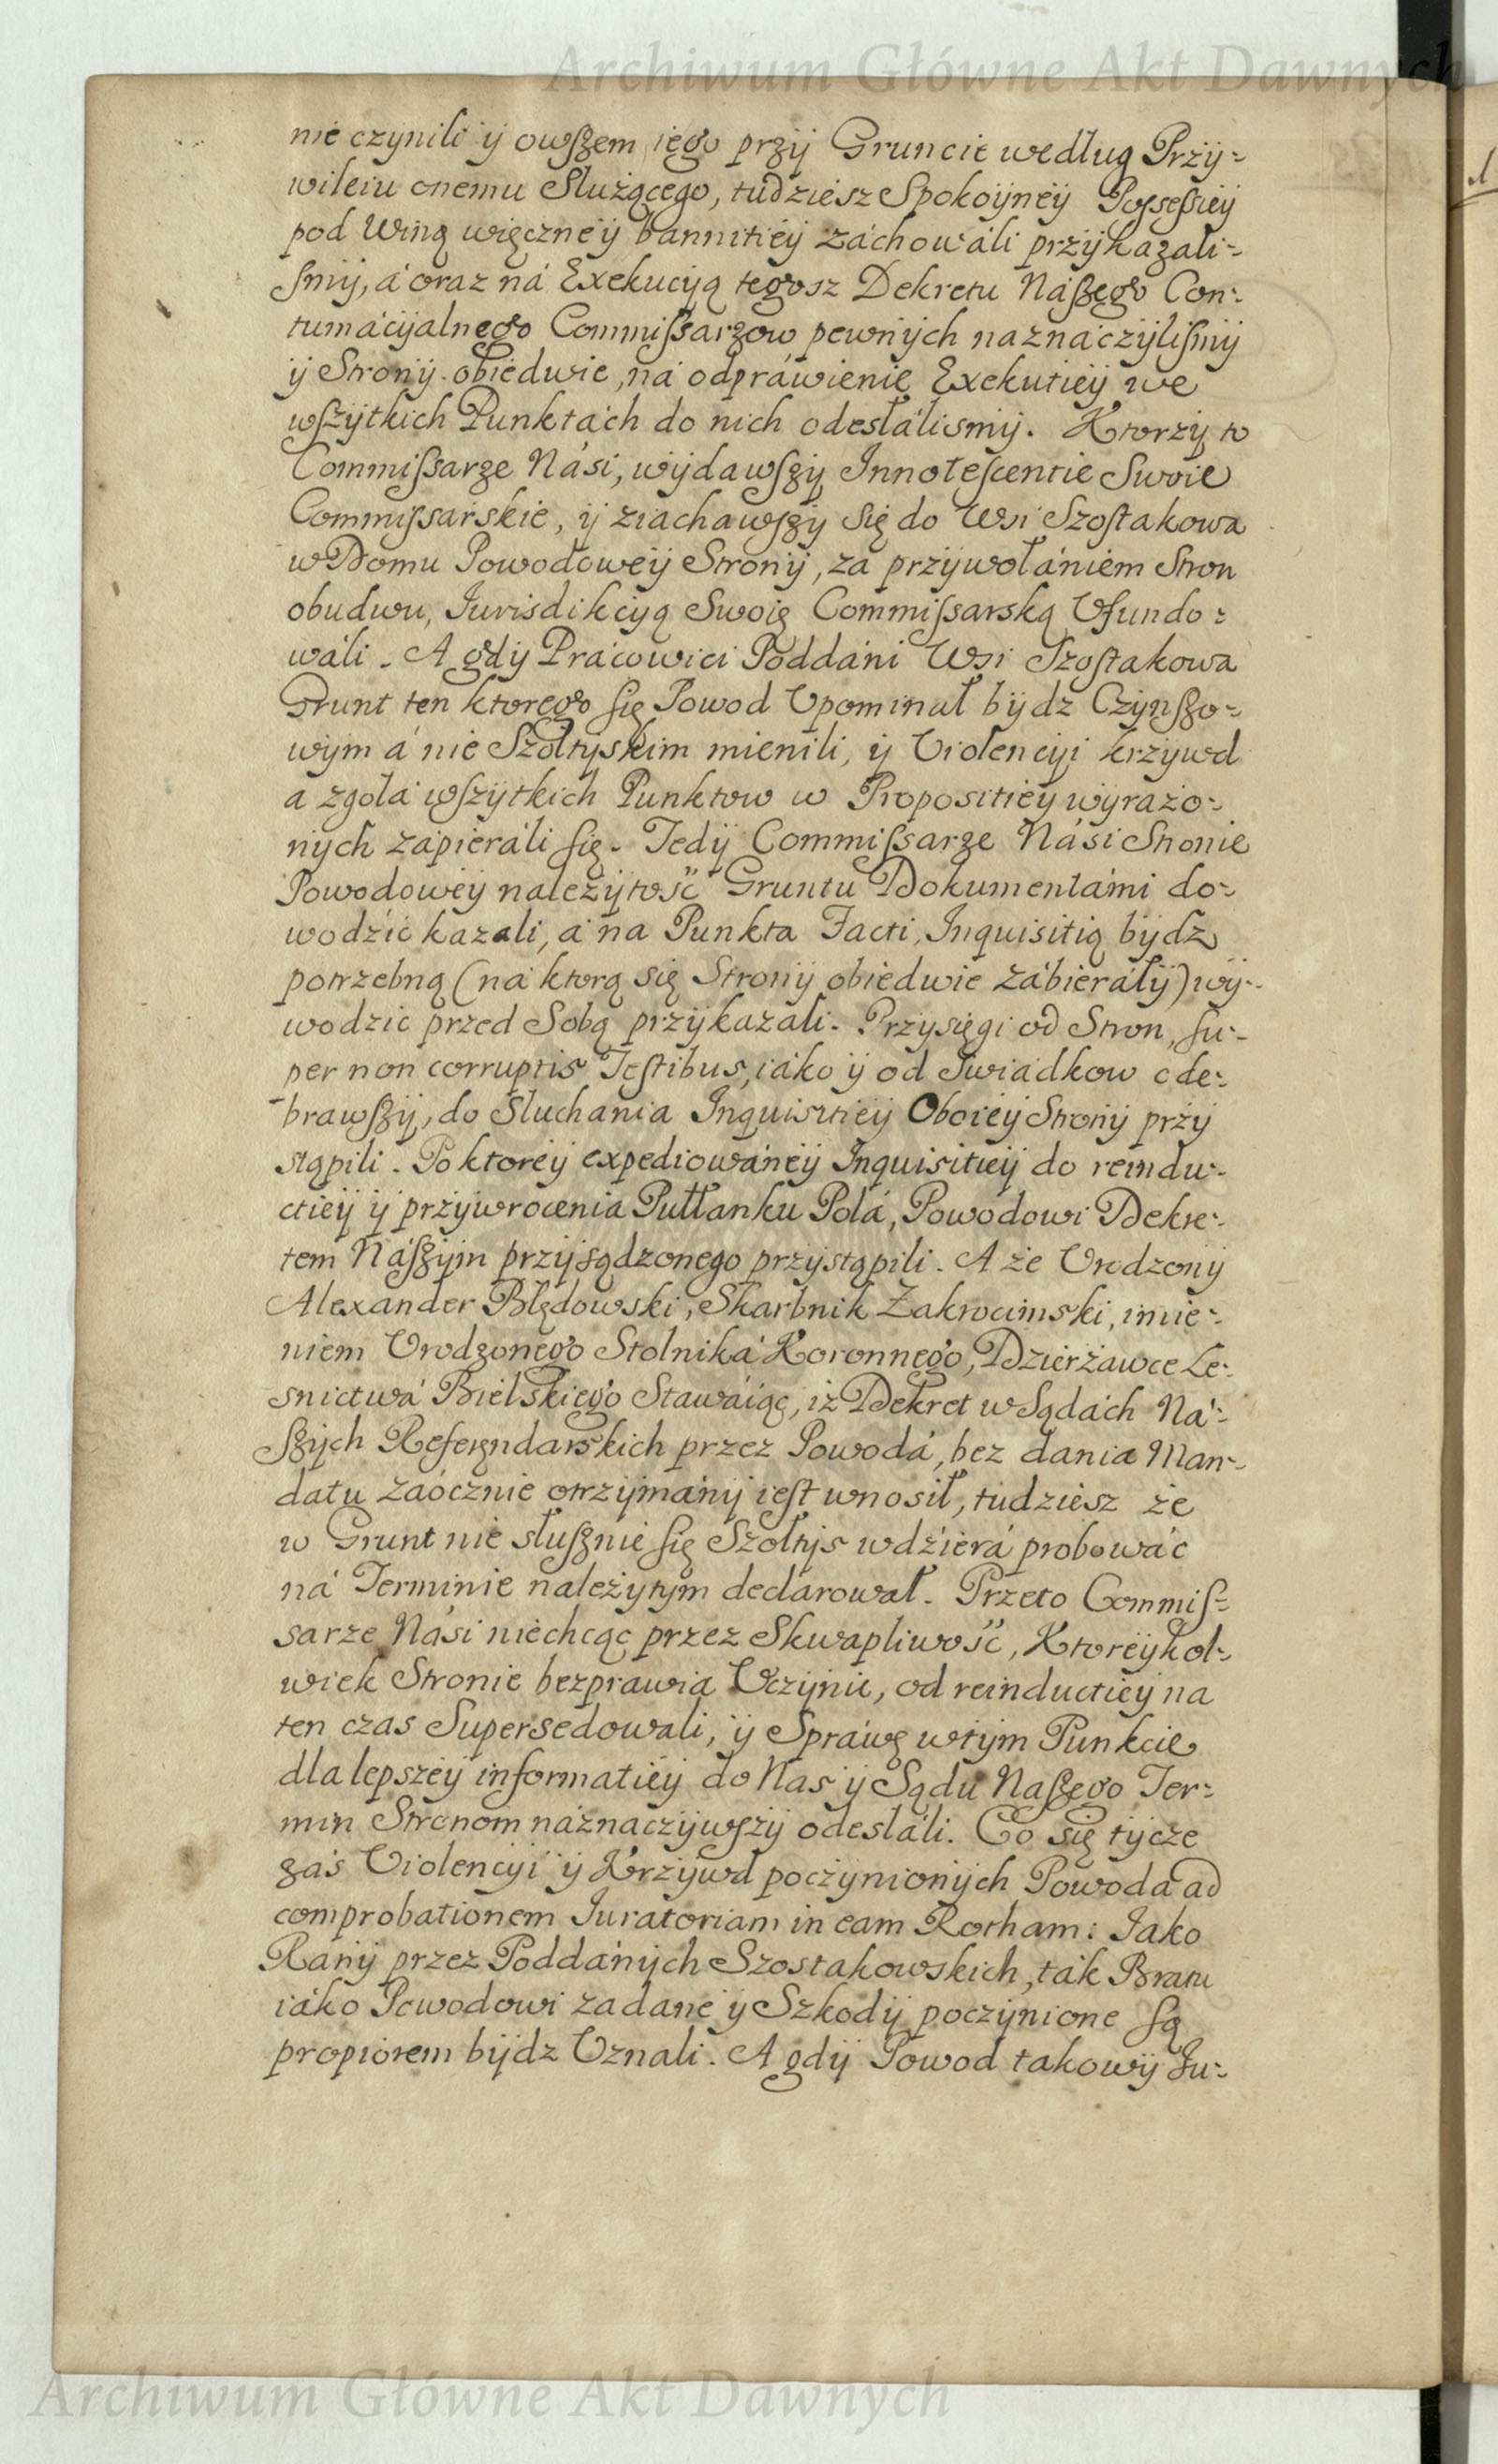 Archiwum Główne Akt Dawnych
nie czynili ÿ owſzem iego przÿ Gruncie według Przÿ-
wileiu onemu Służącego, tudziesz Spokoÿneÿ Poſseſsieÿ
pod Winą więczneÿ bannitieÿ záchowáli przÿkazali-
ſmÿ, á oraz ná Exekucÿą tegosz Dekretu Nászego Con-
tumácÿalnego Commiſsarzow pewnÿch náznáczÿliſmÿ
ÿ Stronÿ obiedwie, ná odpráwienie Exekutieÿ we
wſzÿtkich Punktách do nich odesłálismÿ. Ktorzÿ to
Commiſsarze Nási, wÿdawſzÿ Innoteſcentie Swoie
Commiſsarskie, ÿ ziachawſzÿ się do Wsi Szoſtakowa
w Domu Powodoweÿ Stronÿ, za przÿwołániem Stron
obudwu, Iurisdikcÿą Swoię Commiſsarską Vfundo-
wáli. A gdÿ Prácowici Poddáni Wsi Szoſtakowa
Grunt ten ktorego ſię Powod Vpominał bÿdz Czÿnſzo-
wÿm á nie Szołtÿskim mienili, ÿ Violencÿi krzÿwd
a zgołá wſzÿtkich Punktow w Propositieÿ wÿrażo-
nÿch zápieráli ſię. Tedÿ Commiſsarze Nási Stronie
Powodoweÿ należÿtość Gruntu Dokumentámi do-
wodźić kazali, á na Punkta Facti, Inquisitią bÿdź
potrzebną (ná ktorą się Stronÿ obiedwie zábierałÿ) wÿ-
wodzic przed Sobą przÿkazali. Przysięgi od Stron, ſu-
per non corruptis Teſtibus, iáko ÿ od Swiadkow ode-
brawſzÿ, do Słuchania Inquisitieÿ Oboieÿ Stronÿ przÿ
stąpili. Po ktoreÿ expediowáneÿ Inquisitieÿ do reindu-
ctieÿ ÿ przÿwrocenia Pułłanku Polá, Powodowi Dekre-
tem Nászÿm przÿsądzonego przÿstąpili. A że Vrodzonÿ
Alexander Błędowski, Skarbnik Zakrocimski, imie-
niem Vrodzonego Stolniká Koronnego, Dzierżawce Le-
snictwá Bielskiego Stawáiąc, iż Dekret w Sądách Ná-
ſzÿch Referendarskich przez Powodá, bez dania Man-
datu záocznie otrzÿmánÿ ieſt wnosił, tudziesz że
w Grunt nie słuſznie ſię Szołtÿs wdźierá probowác
ná Terminie należÿtÿm declarował. Przeto Commiſ-
sarze Nási niechcąc przez Skwapliwość, Ktoreÿkol-
wiek Stronie bezprawia Vczÿnic, od reinductieÿ na
ten czas Supersedowali, ÿ Spráwę w tÿm Punkcie
dla lepszeÿ informatieÿ do Nas ÿ Sądu Naſzego Ter-
min Stronom náznaczÿwſzÿ odesłáli. Co się tÿcze
zás Violencÿi ÿ Krzÿwd poczÿnionÿch Powoda ad
comprobationem Iuratoriam in eam Rotham: Iako
Ranÿ przez Poddánÿch Szostakowskich, ták Bratu
iáko Powodowi zadane ÿ Szkodÿ poczÿnione ſą
propiorem bÿdz Vznali. A gdÿ Powod takowÿ Iu-
Archiwum Główne Akt Dawnych